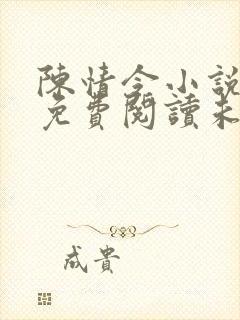 陳情令小說
免費閱讀未
成貴